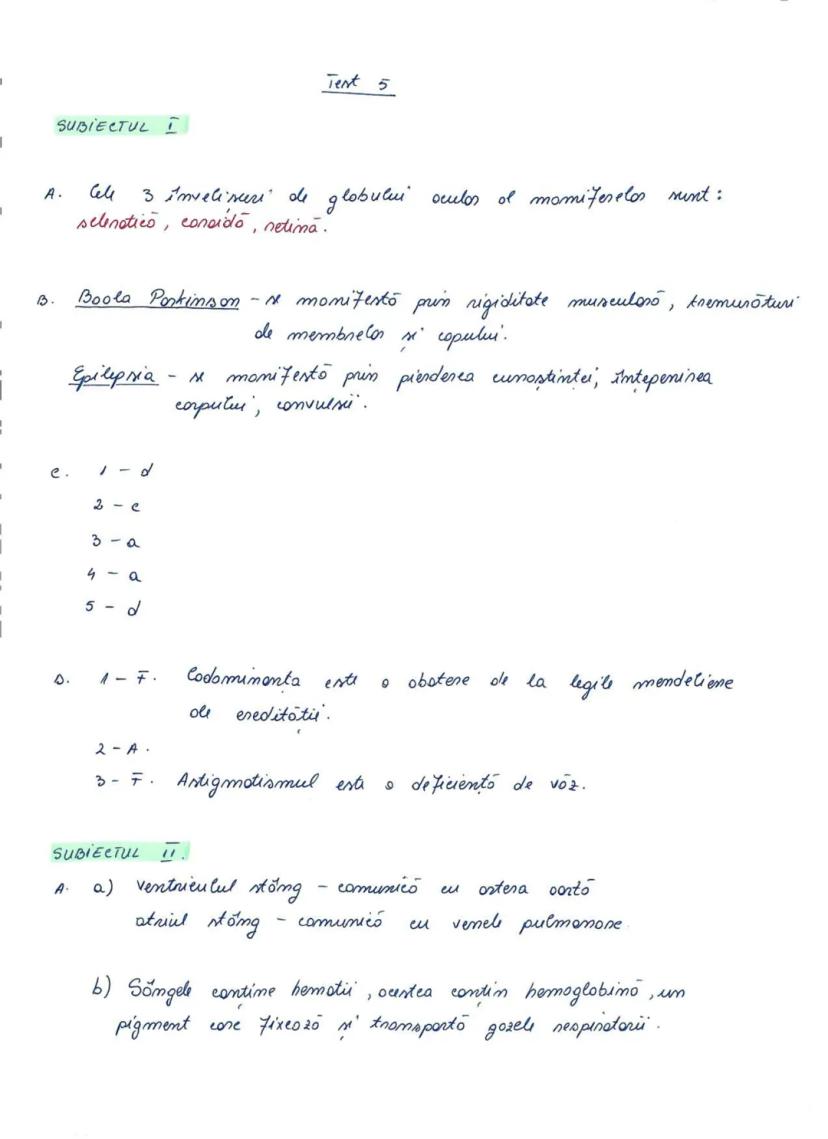 Test 5
SUBIECTUL I
A. Cele 3 învelișuri de globului ocular al mamiferelor sunt:
sclerotică, coroidă, retină.
B. Boala Parkinson - se manifestă prin rigiditate musculară, tremurături
de membrelor și capului.
Epilepsia - se manifestă prin pierderea cunoștintei, înțepenirea
corpului, convulsii.
C. 1 - d
2 - c
3 - a
4 - a
5 - d
D. 1 - F. Codominanta este o abatere de la legile mendeliene
ale eredității.
2 - A.
3 - F. Astigmatismul este o deficiență de văz.
SUBIECTUL II.
A. a) ventriculul stâng - comunică cu artera aortă
atriul stâng - comunică cu venele pulmonare
b) Sângele conține hematii, acestea conțin hemoglobină, un
pigment care fixează și transportă gazele respiratorii.